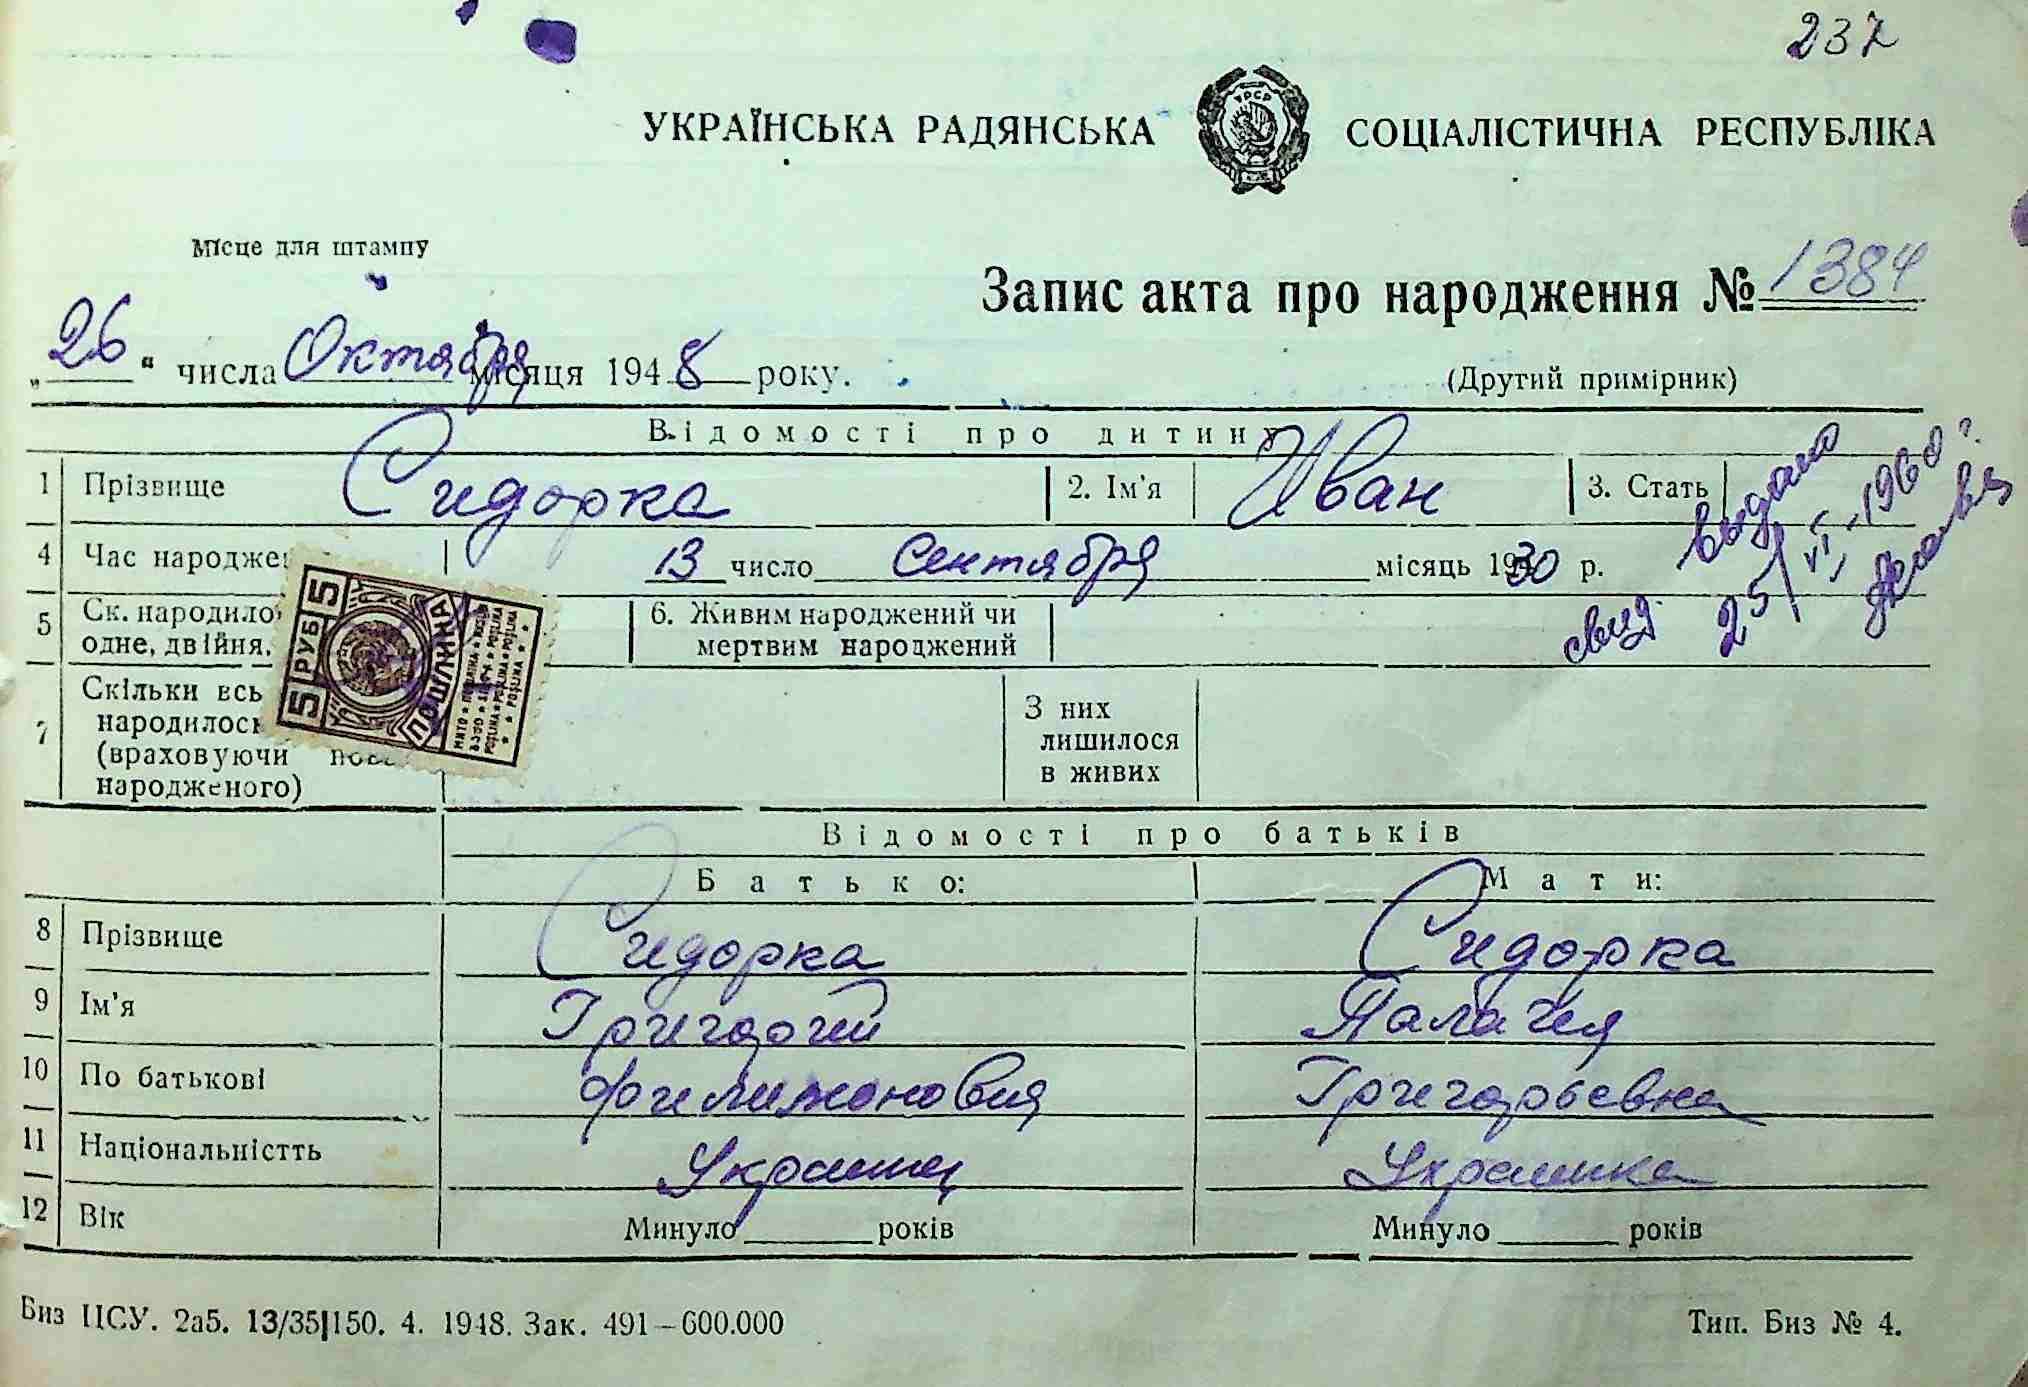 237
УКРАЇНСЬКА РАДЯНСЬКА СОЦІАЛІСТИЧНА РЕСПУБЛІКА
УРСР
Місце для штампу
Запис акта про народження № 1384
„26“ числа Октября місяця 1948 року.
(Другий примірник)
Відомості про дитину
1 Прізвище Сидорка 2. Ім'я Иван 3. Стать
4 Час народже 13 число Сентября місяць 1930 р.
свид. выдано 25/VI-1960 г.
5 Ск. народило одне, двійня, 6. Живим народжений чи мертвим народжений
7 Скільки всь народилось (враховуючи нова народженого) З них лишилося в живих
5 РУБ 5
ПОШЛИНА
Відомості про батьків
Батько: Мати:
8 Прізвище Сидорка Сидорка
9 Ім'я Григорий Палагея
10 По батькові Филимонович Григорьевна
11 Національністть Украинец Украинка
12 Вік Минуло ____ років Минуло ____ років
Биз ЦСУ. 2а5. 13/35|150. 4. 1948. Зак. 491—600.000
Тип. Биз № 4.